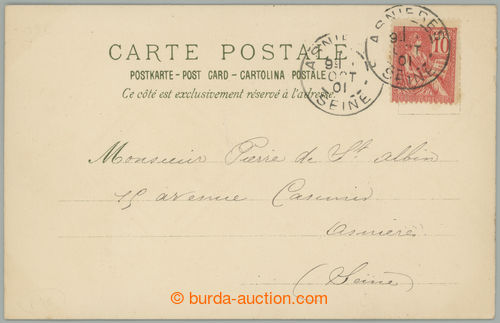 CARTE POSTALE
POSTKARTE - POST CARD - CARTOLINA POSTALE
Ce côté est exclusivement réservé à l'adresse.
ASNIERES
9E
OCT
01
SEINE
ASNIERES
9E
OCT
01
SEINE
10
Monsieur Pierre de St Albin
15 avenue Casimir
Asnières
(Seine)
burda-auction.com